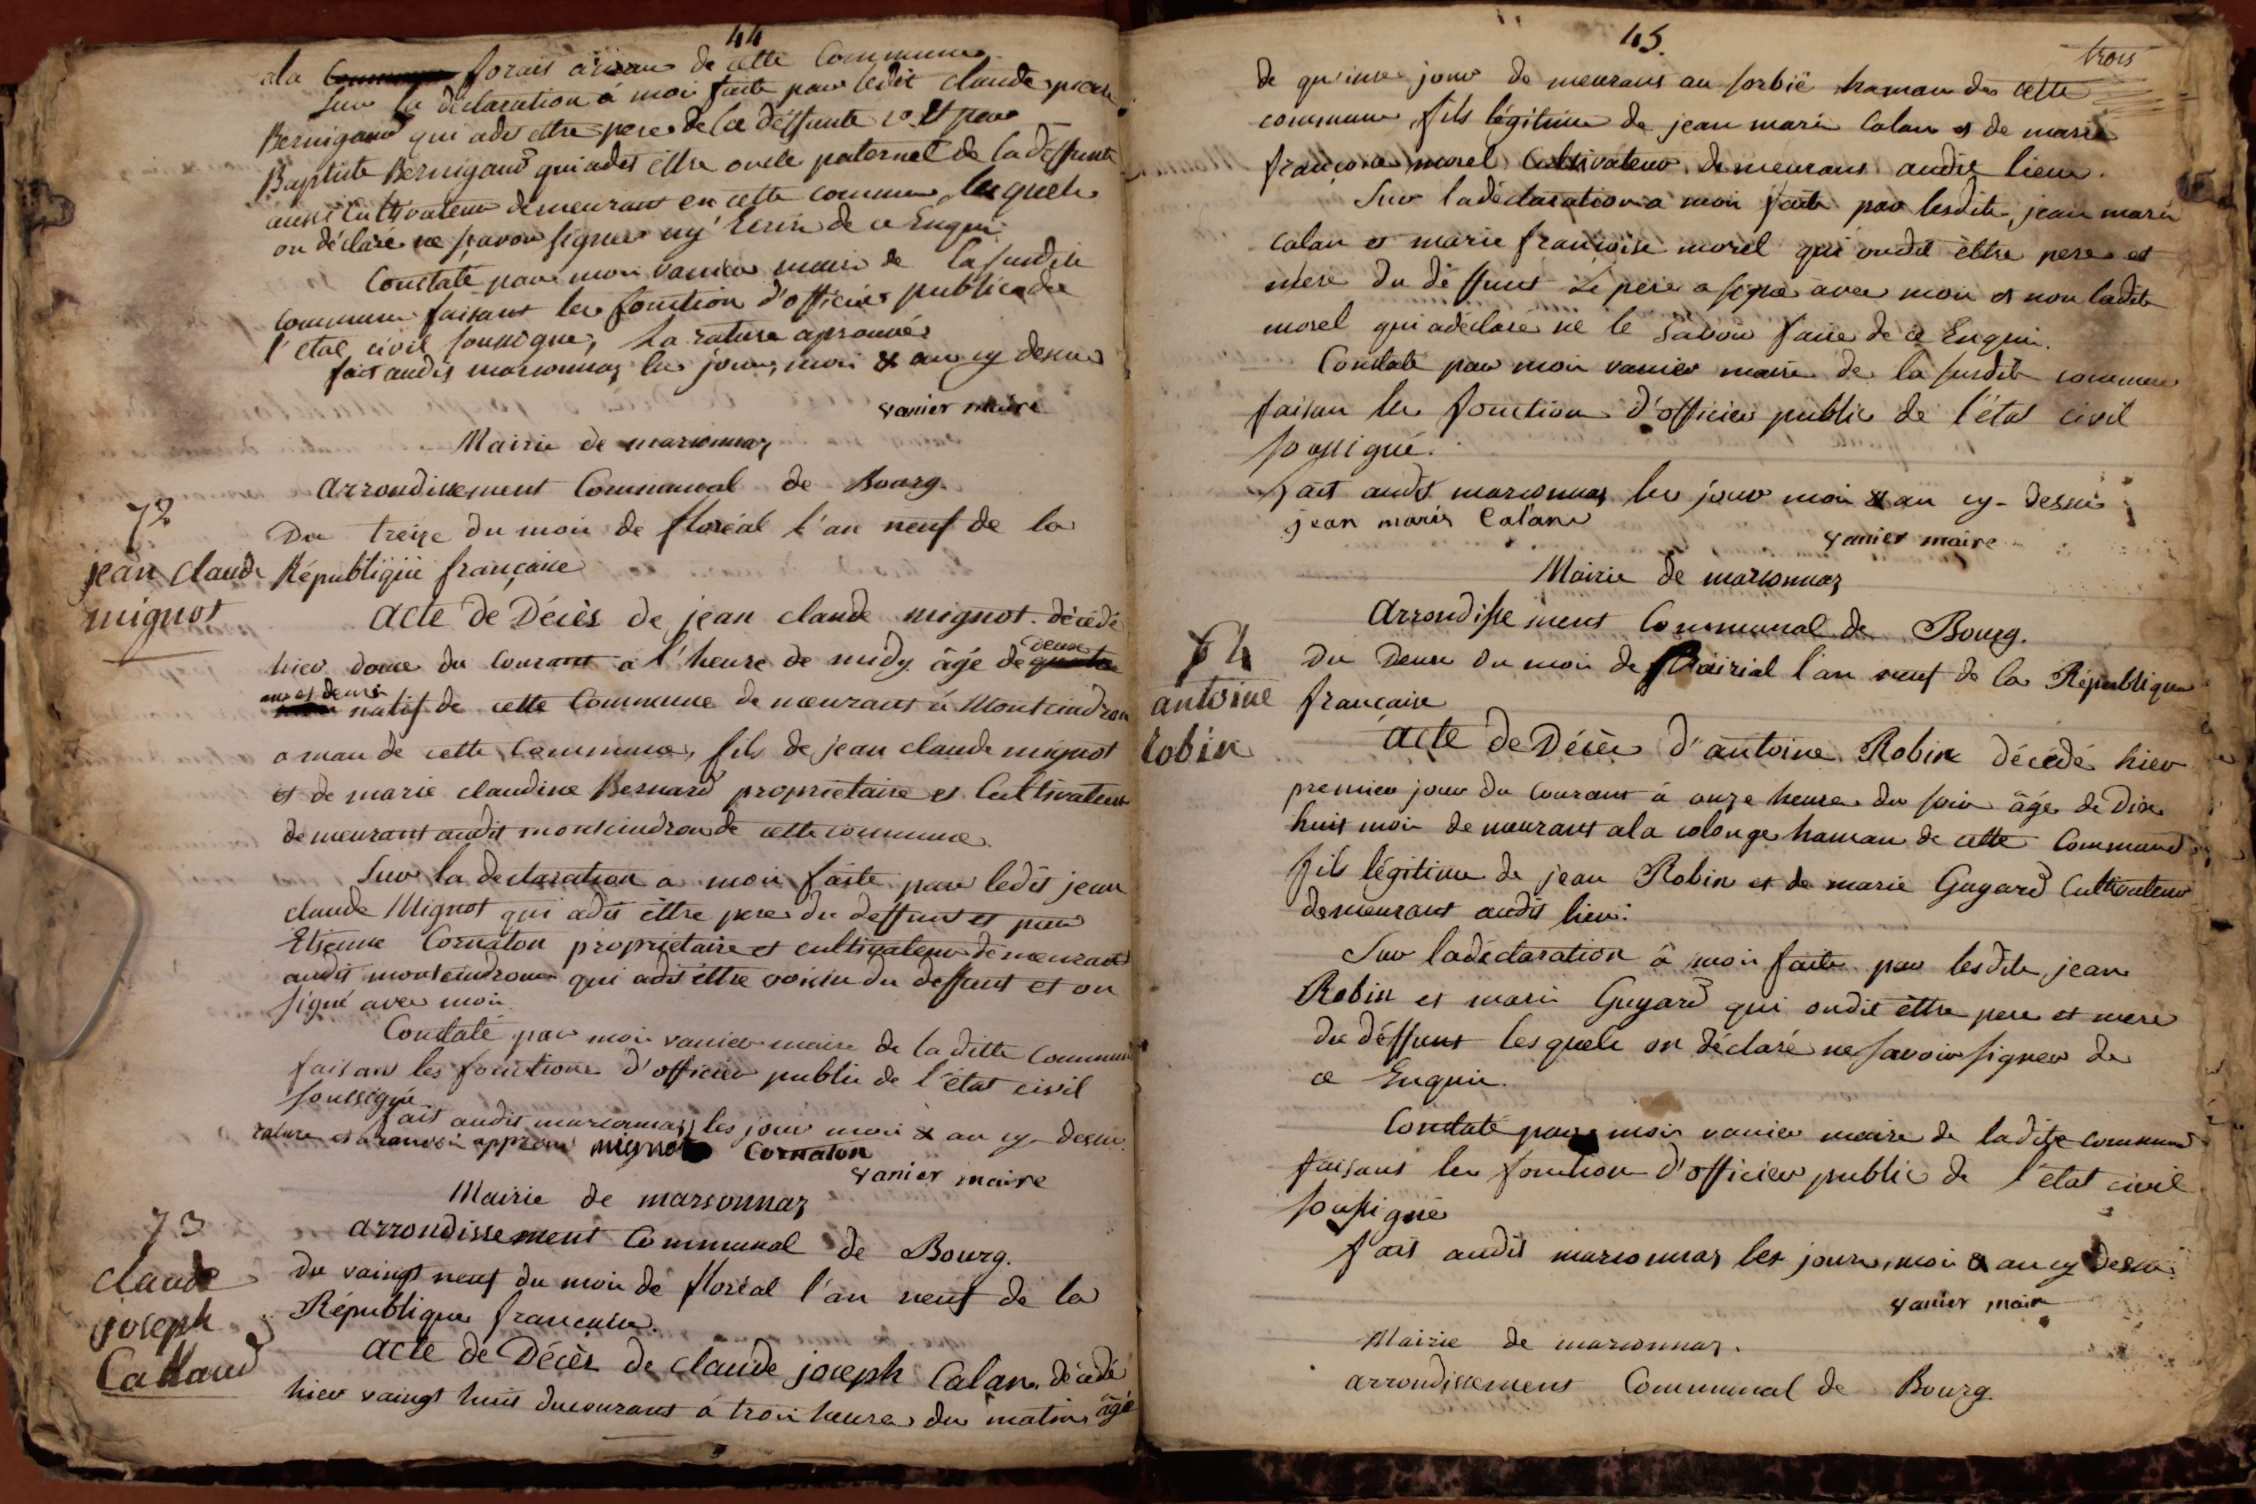 44
ala forais de cette Commune
Sur la déclaration à moi faite par ledit claude
Bernigaud qui adit ettre pere de la deffunte et par
Baptiste Bernigaud qui adit ettre oncle paternel de la deffunte
aussi Cultivateur demeurant en cette commune lesquels
on déclaré ne sçavoir signer ny Ecrire de ce Enquis
Constaté par moi vanier maire de la susdite
commune faisant les fonction d'officier public de
l'état civil soussigné, La rature aprouvée
fait audit marsonnaz les jour, mois & an cy desus
vanier maire
Mairie de marsonnaz
arrondissement Communal de Bourg.
72
jean claude
mignot
Du treize du mois de floréal l'an neuf de la
République françaice
acte de Décès de jean claude mignot décédé
hier douze du courant a l'heure de midy âgé de deux
ans et demi natif de cette Commune demeurant à Montcindrou
aman de cette Commune, fils de jean claude mignot
et de marie claudine Bernard propriétaire et Cultivateur
demeurant audit montcindrou de cette commune.
Sur la declaration a moi faite par ledit jean
claude Mignot qui adit ettre pere du deffunt et par
Etienne Cornaton propriétaire et cultivateur demeurant
audit montcindroux qui adit ettre voisin du deffunt et on
signé avec moi
Constaté par moi vanier maire de ladite Commune
faisan les fonctions d'officier public de l'état civil
soussigné
fait audit marsonnaz les jour mois & an cy-desus
rature et approuvé mignot Cornaton
vanier maire
Mairie de marsonnaz
arrondissement Communal de Bourg.
73
claude
joseph
Calland
Du vaingt neuf du mois de floréal l'an neuf de la
République française.
acte de Décès de claude joseph Calan décédé
hier vaingt huit ducourant à trois heures du matin âgé
45.
trois
de quinse jour demeurant au sorbié haman de cette
commune, fils légitime de jean marie Calan et de marie
françoise morel Cultivateur demeurant audit lieu.
Sur ladéclaration a moi faite par lesdits jean marie
Calan et marie françoise morel qui ondit ettre pere et
mere du déffunt Le père a signé avec moi et non ladite
morel qui adéclaré ne le savoir faire de ce Enquis.
Constaté par moi vanier maire de la susdite commune
faisan les fonction d'officier public de l'état civil
soussigné.
fait audit marsonnaz les jour mois & an cy-desus
jean marie Calan
vanier maire
Mairie de marsonnaz
arrondissement Communal de Bourg.
74
antoine
robin
Du Deux du mois de prairial l'an neuf de la République
française
acte de Décès d'antoine Robin décédé hier
premier jour du courant à onze heures du soir âgé de Dix
huit mois demeurant ala colonge haman de cette Commune
fils légitime de jean Robin et de marie Guyard Cultivateur
demeurant audit lieu.
Sur ladéclaration à moi faite par lesdits jean
Robin et marie Guyard qui ondit ettre pere et mere
du déffunt lesquels on déclaré ne savoir signer de
ce Enquis.
Constaté par moi vanier maire de ladite commune
faisant les fonction d'officier public de l'état civil
soussigné
fait audit marsonnaz les jours, mois & an cy desus
vanier maire
Mairie de marsonnaz.
arrondissement Communal de Bourg